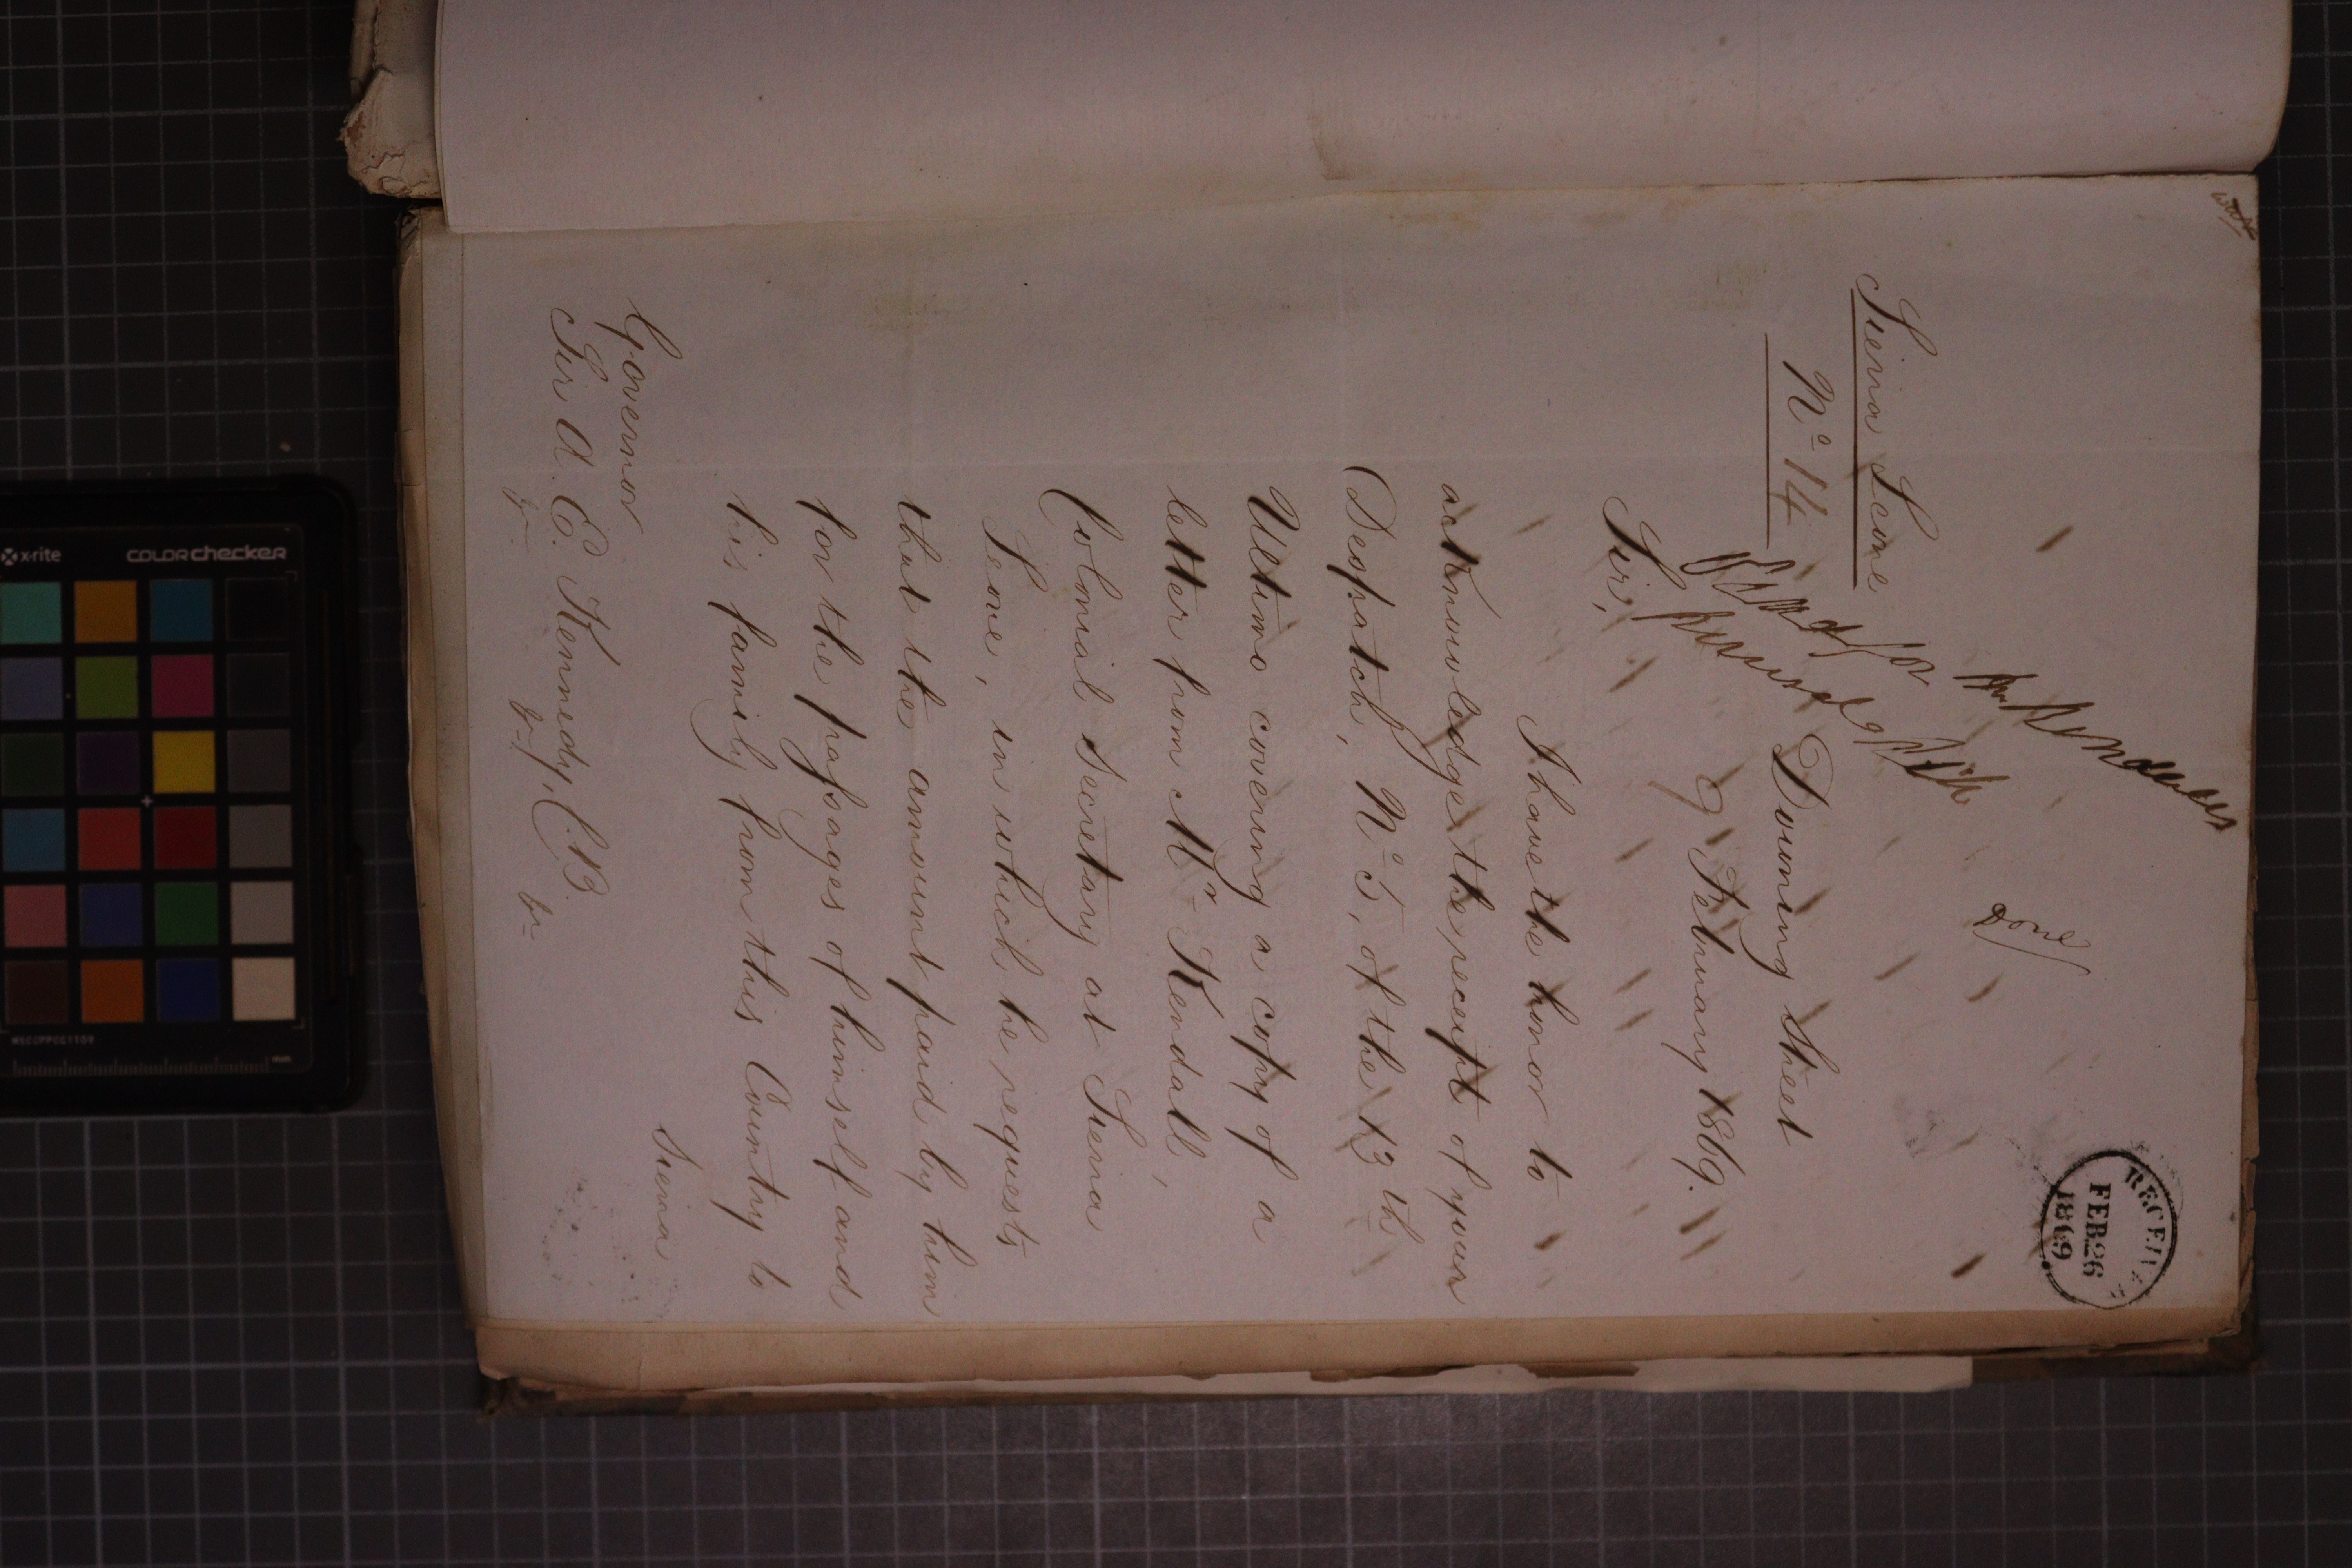 RECEIVED
FEB 26
1869
Done
Sierra Leone
Nº 14
for Mr Kendall's
perusal
Downing Street
9 February 1869.
Sir,
I have the honor to
acknowledge the receipt of your
Despatch, Nº 5, of the 13th
Ultimo covering a copy of a
letter from Mr Kendall,
Colonial Secretary at Sierra
Leone, in which he requests
that the amount paid by him
for the passages of himself and
his family from this Country to
Sierra
Governor
Sir A. E. Kennedy, C.B.
&c &c &c
x-rite
colorchecker
MSCCPPCC1109